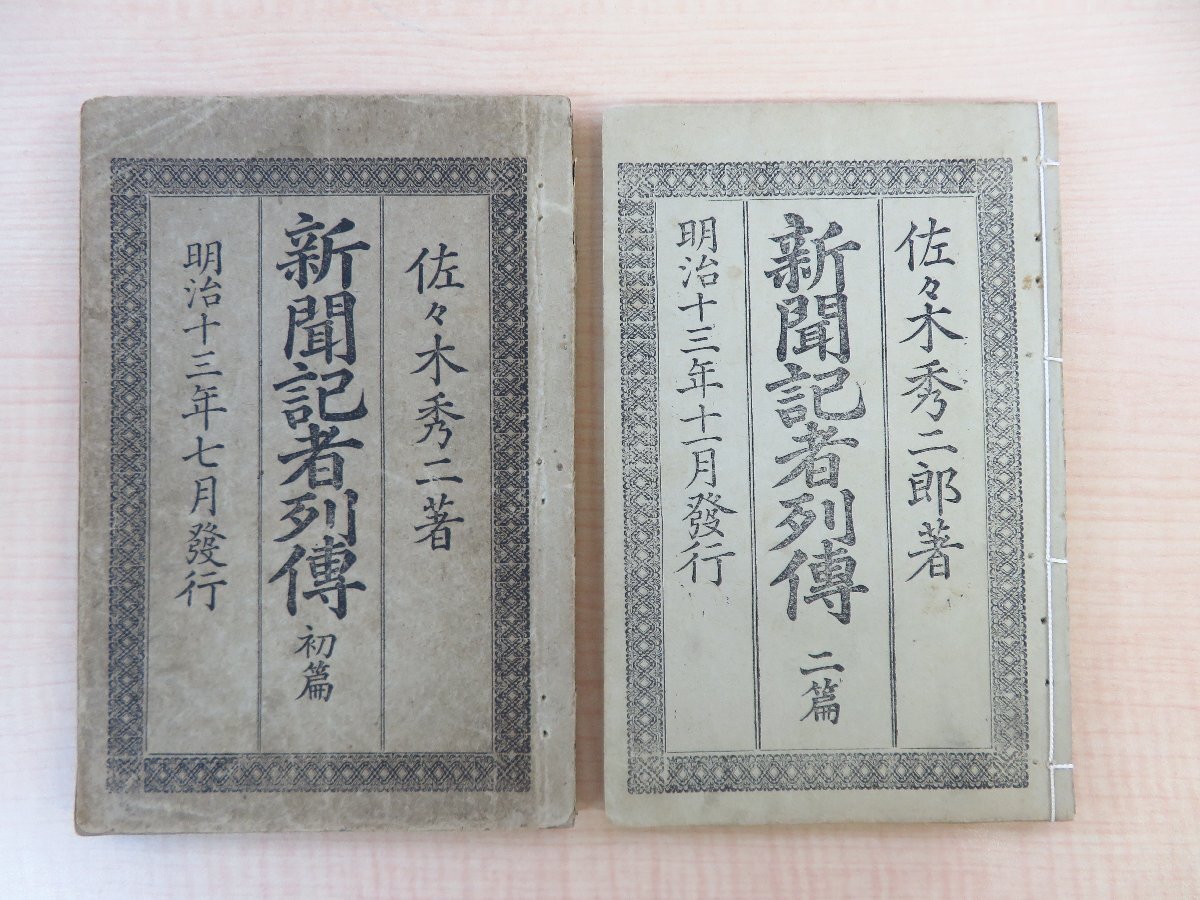 佐々木秀二著
新聞記者列傳 初篇
明治十三年七月發行
佐々木秀二郎著
新聞記者列傳 二篇
明治十三年十一月發行